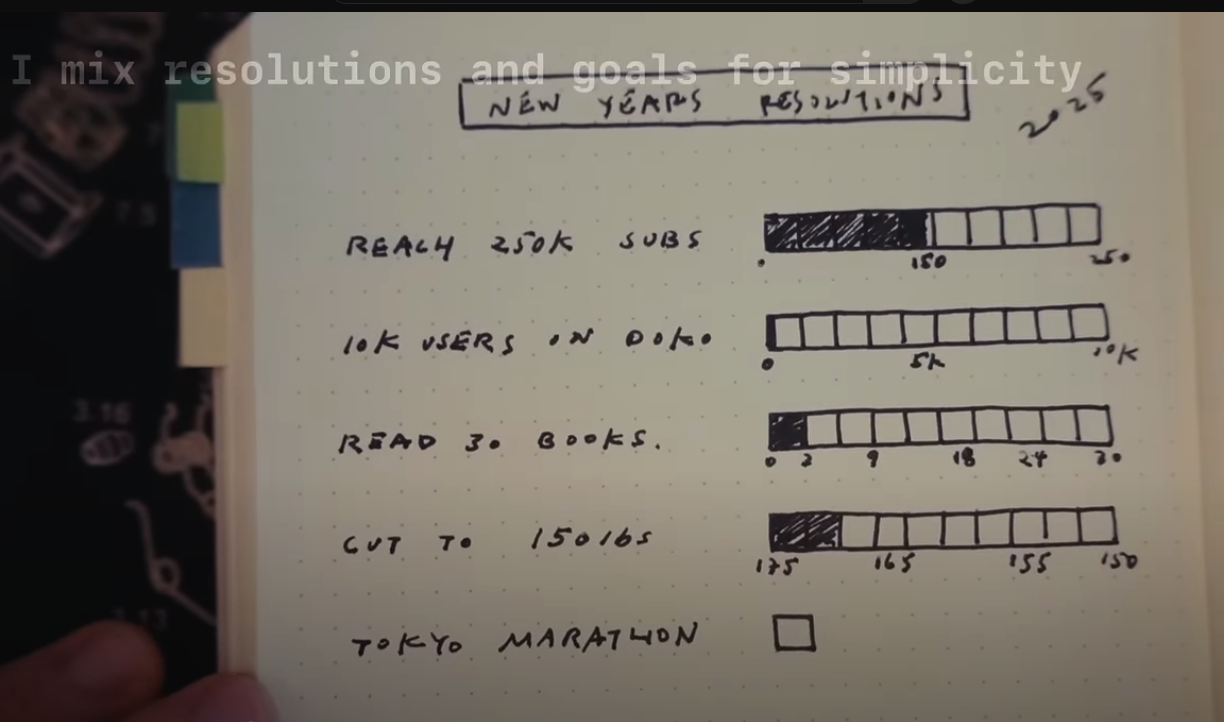 I mix resolutions and goals for simplicity
NEW YEARS RESOLUTIONS
2025
REACH 250K SUBS
0 150 250
10K USERS ON DOKO
0 5K 10K
READ 30 BOOKS.
0 3 9 18 24 30
CUT TO 150 lbs
175 165 155 150
TOKYO MARATHON
3.16